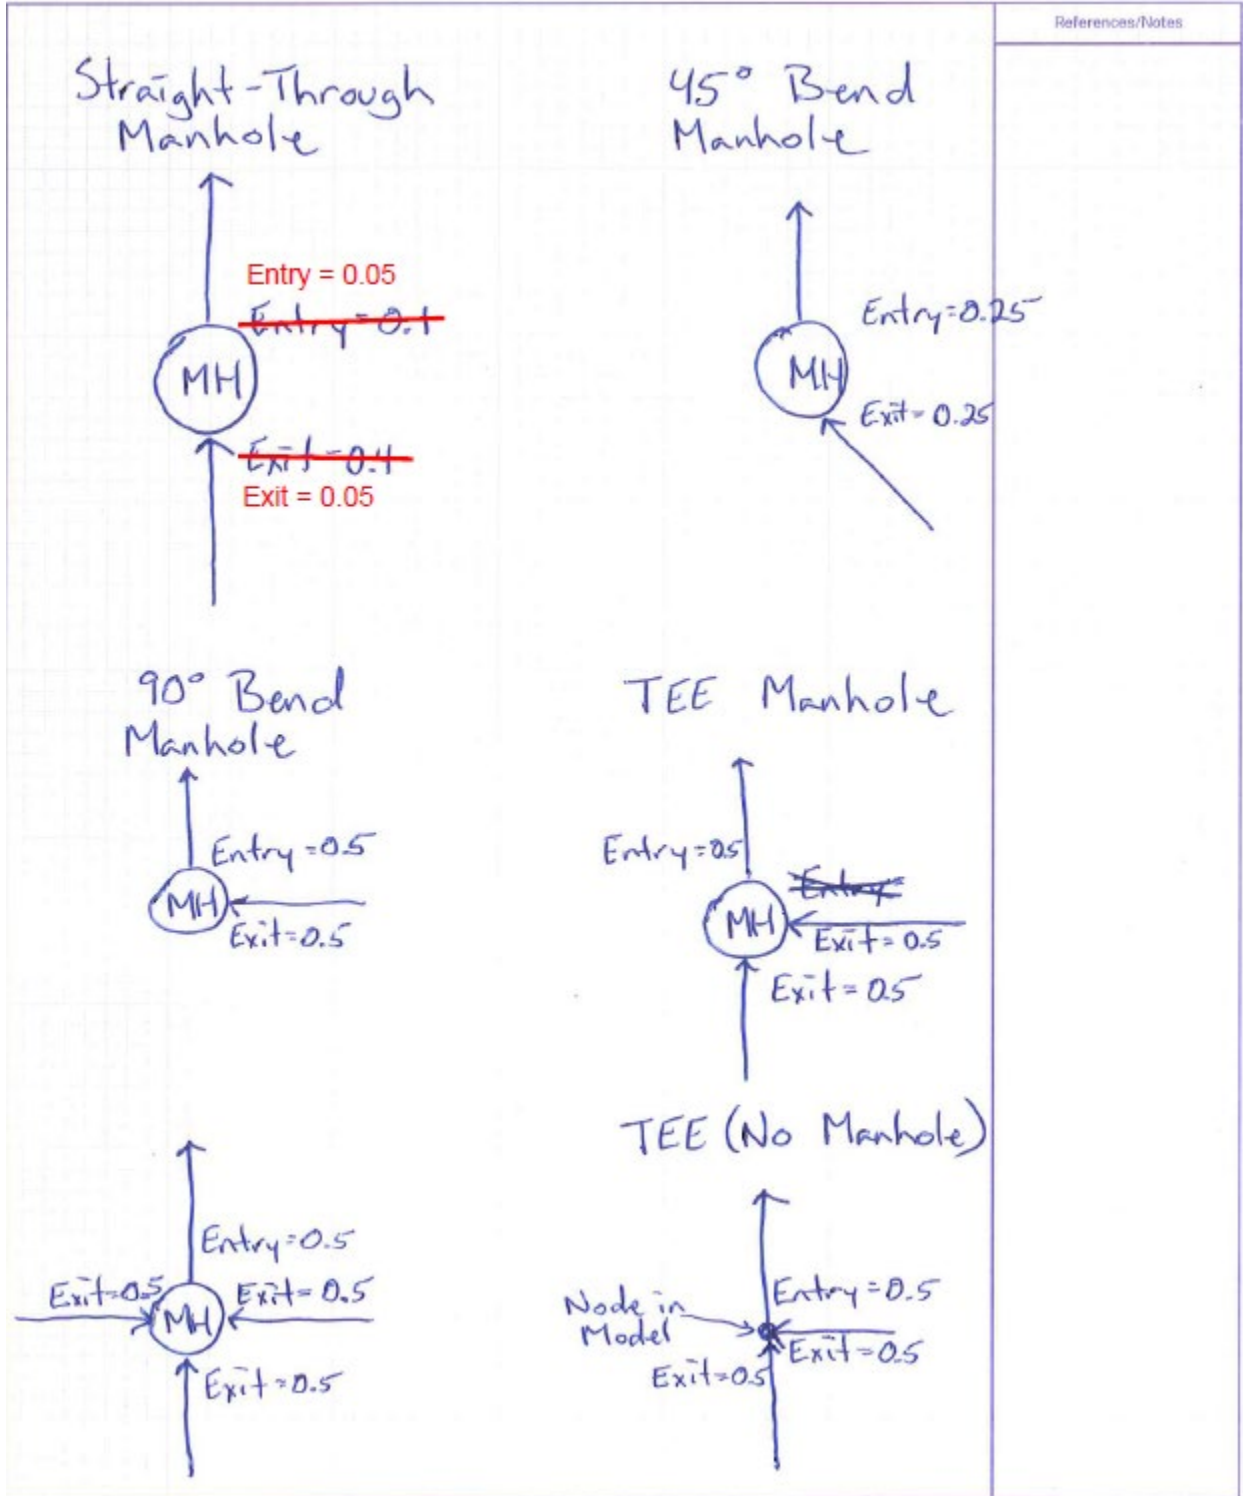 References/Notes
Straight-Through
Manhole
Entry = 0.05
Entry = 0.1
MH
Exit = 0.1
Exit = 0.05
45° Bend
Manhole
Entry=0.25
MH
Exit= 0.25
90° Bend
Manhole
Entry=0.5
MH
Exit=0.5
TEE Manhole
Entry=0.5
Entry=
MH
Exit= 0.5
Exit= 0.5
Entry=0.5
Exit=0.5
Exit= 0.5
MH
Exit=0.5
TEE (No Manhole)
Node in
Model
Entry=0.5
Exit=0.5
Exit=0.5